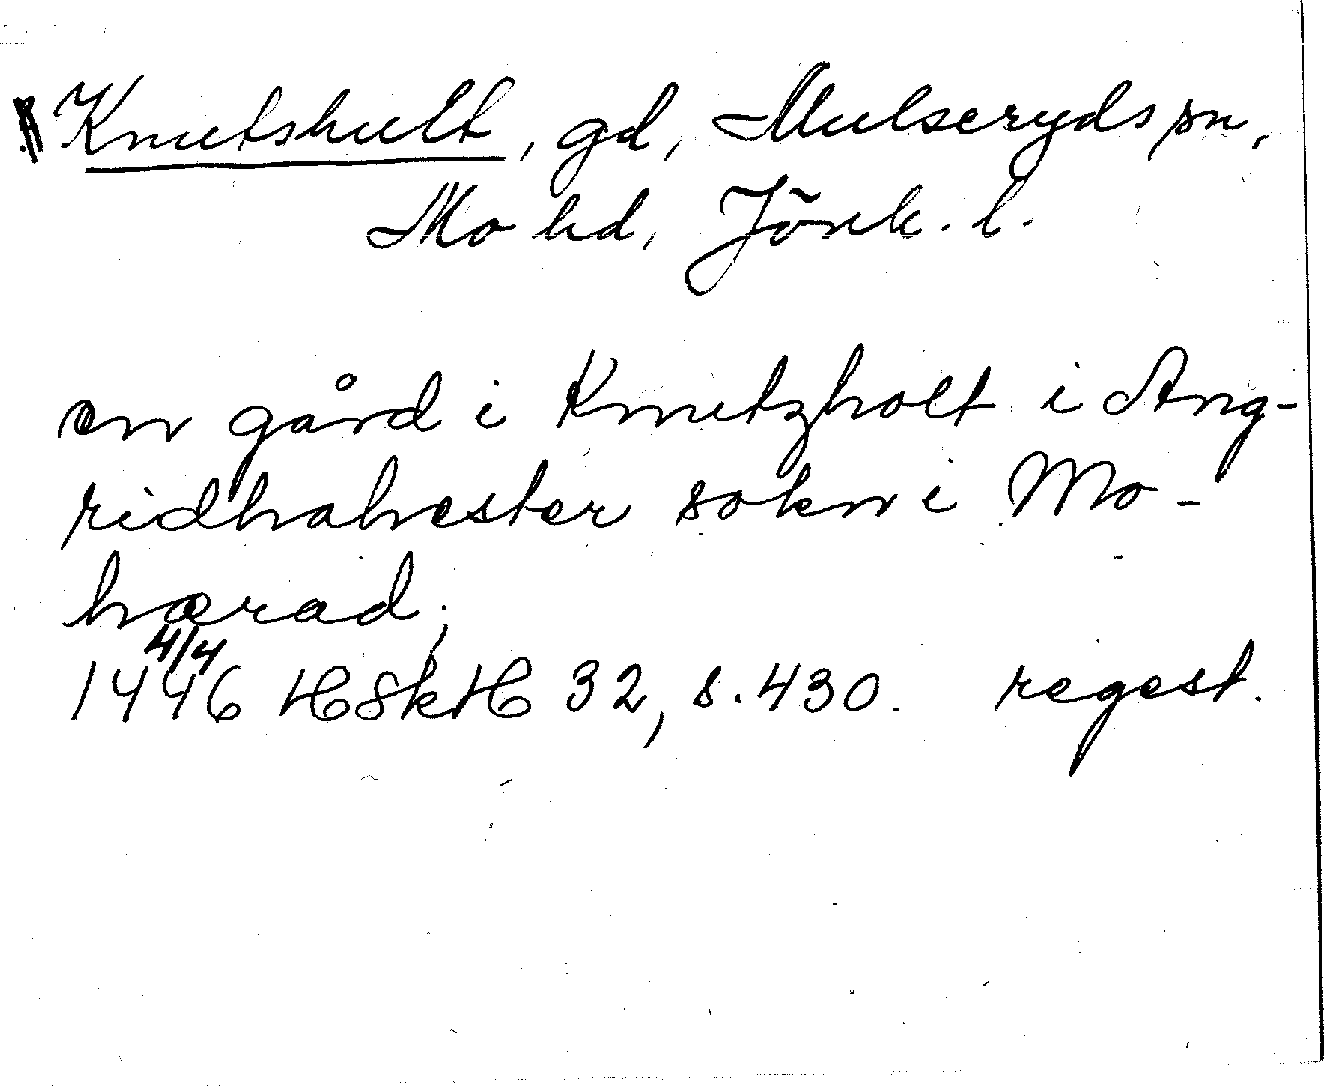 Knutshult, gd, Mulseryds sn,
Mo hd, Jönk. l.
en gård i Knutzholt i Ang-
ridhahester sokn i Mo-
hærad;
1446 4/4 HSkH 32, s. 430. regest.